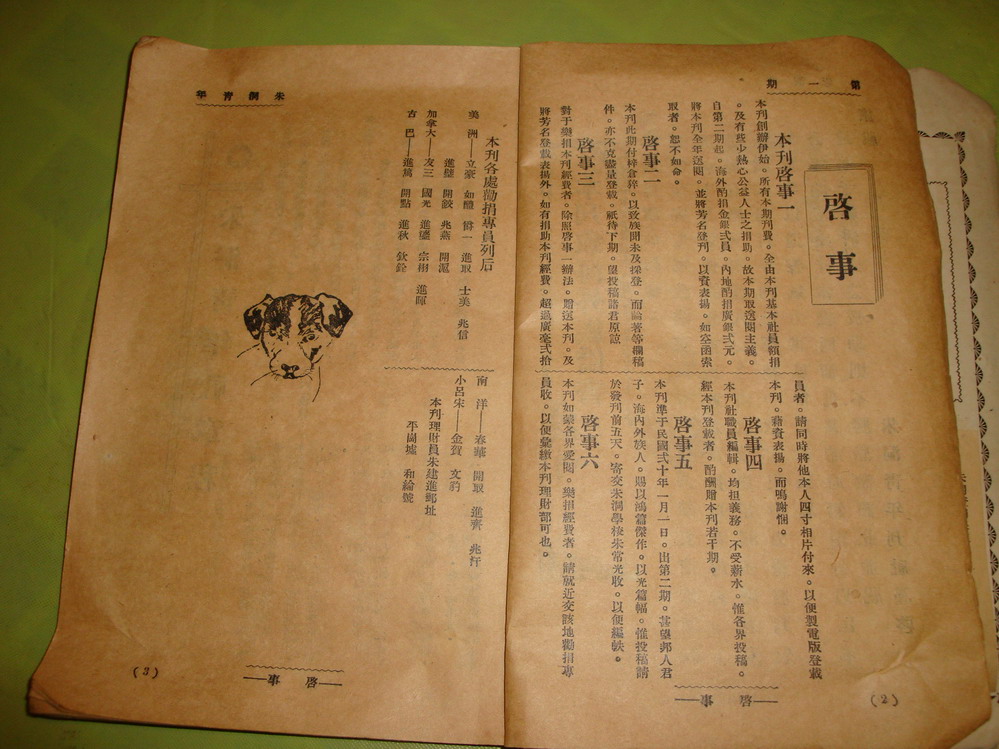 第一期
啓事
本刊啓事一
本刊創辦伊始。所有本期刊費。全由本刊基本社員額捐
。及有些少熱心公益人士之捐助。故本期取送閱主義。
自第二期起。海外酌捐金銀弍員。內地酌捐廣銀弍元。
將本刊全年送閱。並將芳名登刊。以資表揚。如空函索
取者。恕不如命。
啓事二
本刊此期付梓倉猝。以致族聞未及採登。而論著等欄稿
件。亦不克盡量登載。祇待下期。望投稿諸君原諒
啓事三
對于樂捐本刊經費者。除照啓事一辦法。贈送本刊。及
將芳名登載表揚外。如有捐助本刊經費。超過廣毫弍拾
員者。請同時將他本人四寸相片付來。以便製電版登載
本刊。藉資表揚。而鳴謝悃。
啓事四
本刊社職員編輯。均担義務。不受薪水。惟各界投稿。
經本刊登載者。酌酬贈本刊若干期。
啓事五
本刊準于民國弍十年一月一日。出第二期。甚望邦人君
子。海內外族人。賜以鴻篇傑作。以光篇幅。惟投稿請
於發刊前五天。寄交朱洞學校朱常光收。以便編帙。
啓事六
本刊如蒙各界愛閱。樂捐經費者。請就近交該地勸捐專
員收。以便彙繳本刊理財部可也。
啓事
(2)
朱洞青年
本刊各處勸捐專員列后
美洲——立豪 如體 進取 士美 兆信
進壁 開餃 兆燕 開滬
加拿大——友三 國光 進壥 宗栩 進暉
古巴——進篤 開點 進秋 欽銓
南洋——春華 開取 進齊 兆汗
小呂宋——金賀 文豹
本刊理財員朱建進郵址
平崗墟 和綸號
啓事
(3)